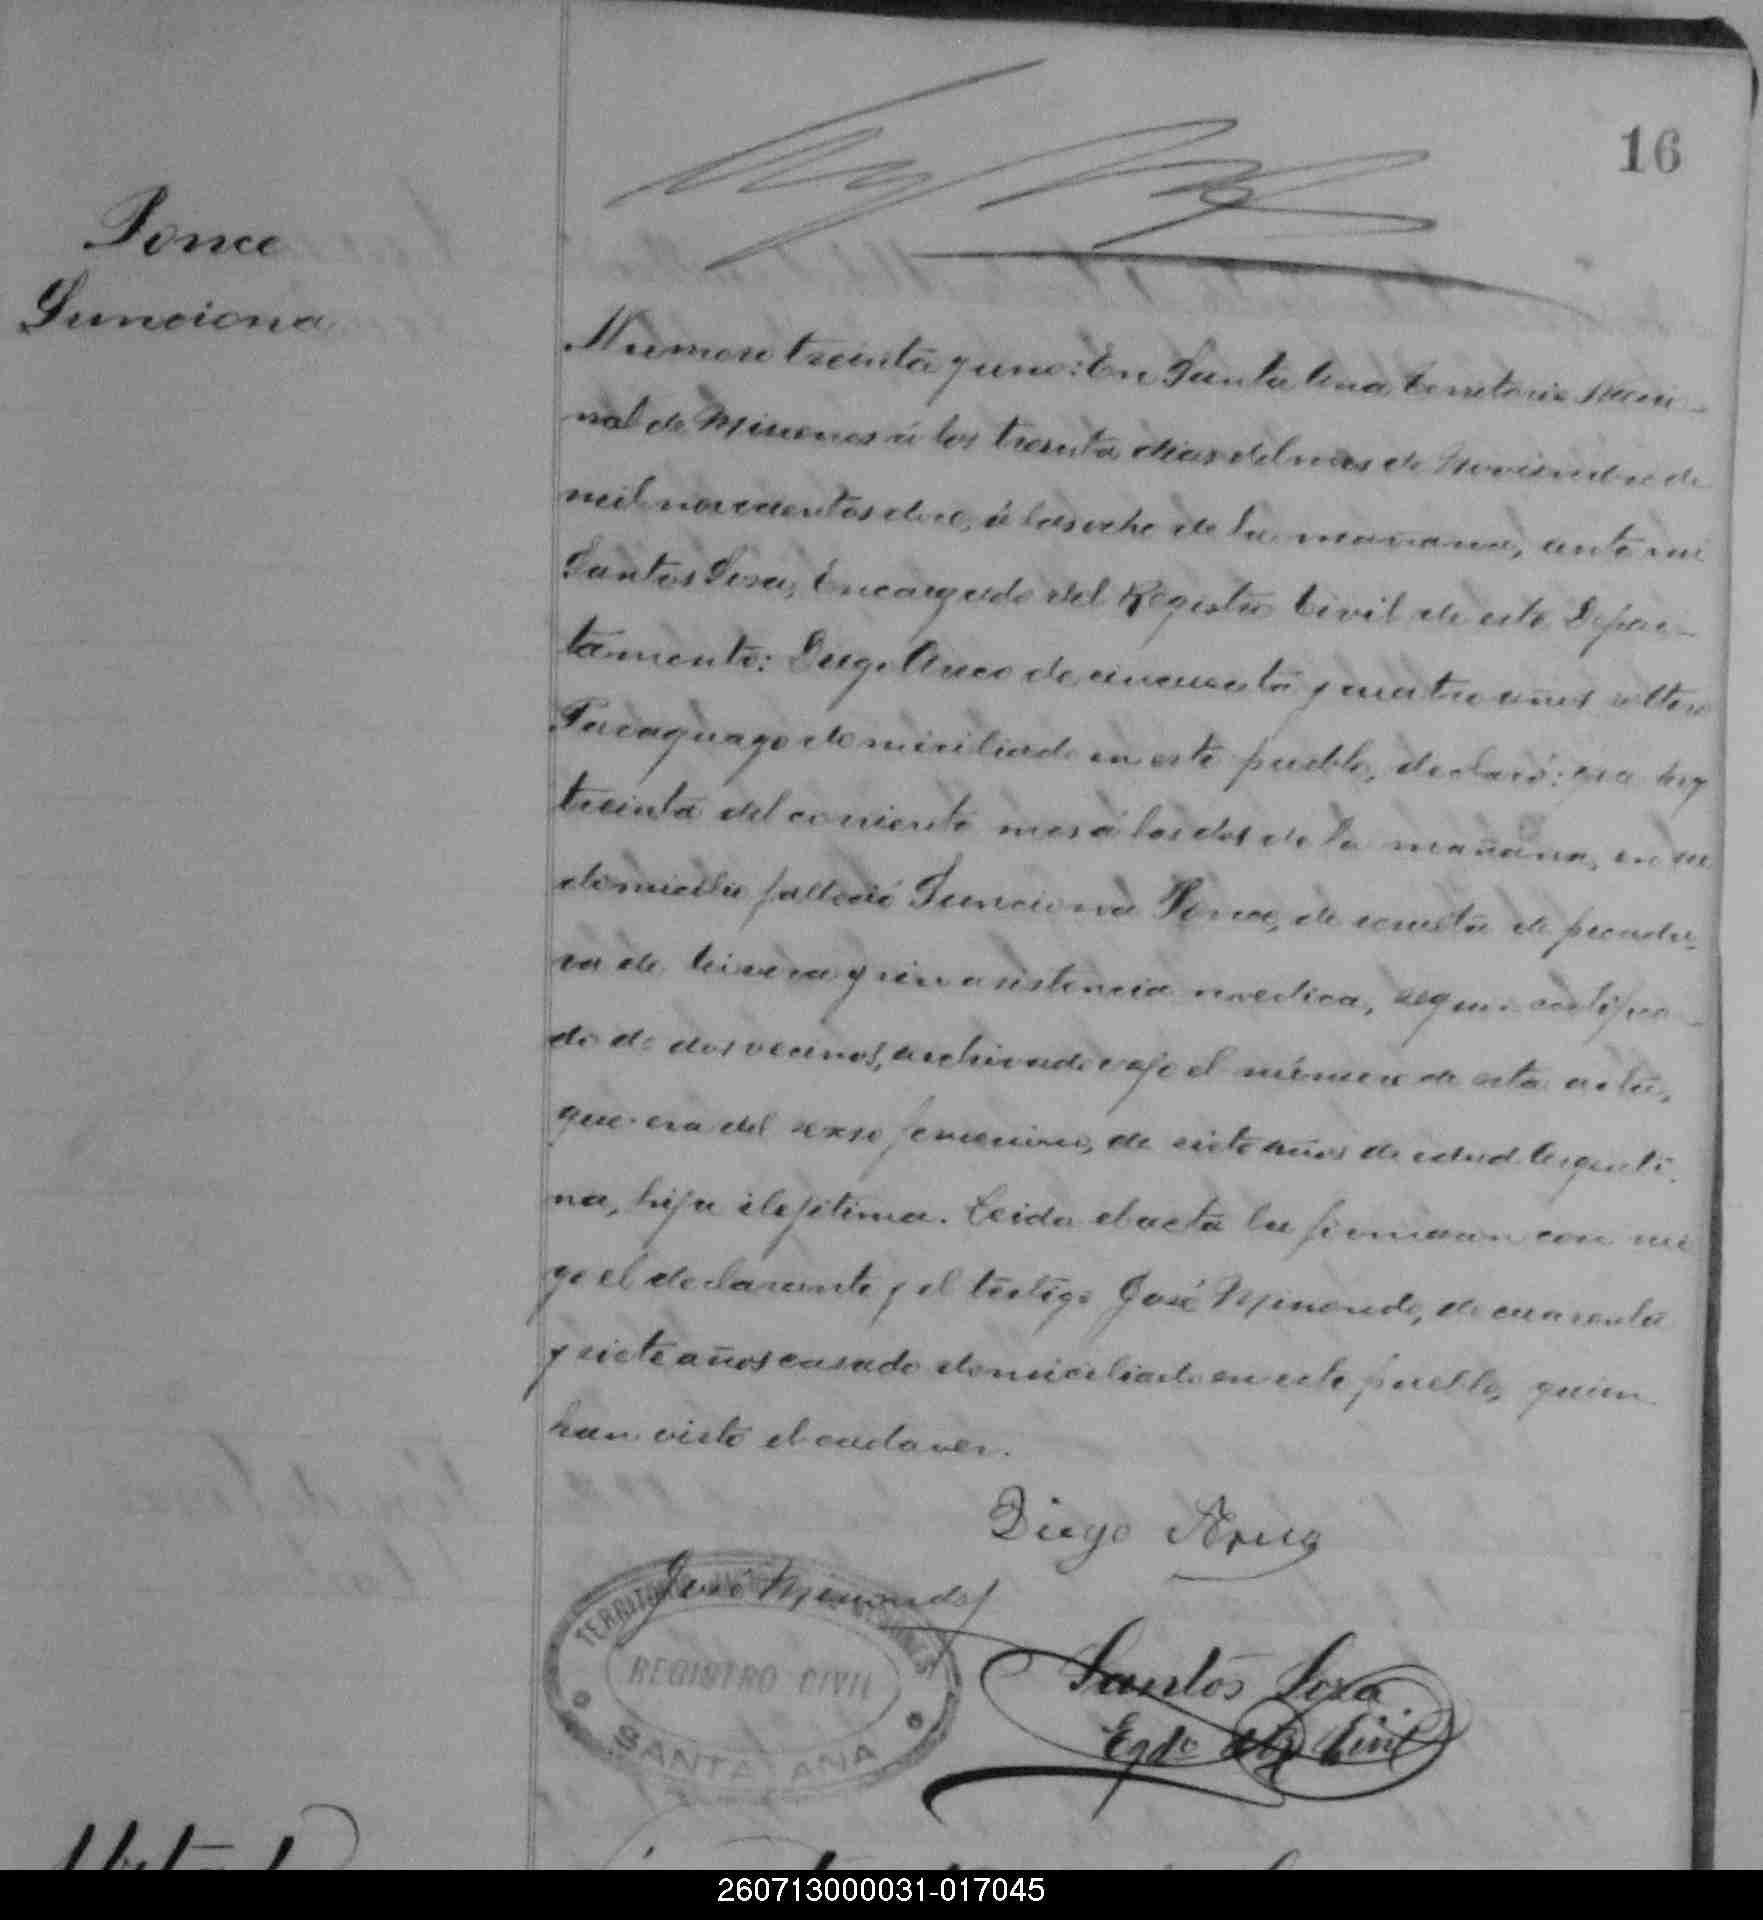 16
Ponce
Funciona
Numero treinta y uno: En Santa Ana, Territorio Nacio-
nal de Misiones á los treinta dias del mes de Noviembre de
mil novecientos doce, á las ocho de la mañana, ante mi
Santos Sosa, Encargado del Registro Civil de este Depar-
tamento: Diego de cincuenta y cuatro años soltero
Paraguayo domiciliado en este pueblo, declaró: que hoy
treinta del corriente mes á las dos de la mañana, en su
domicilio falleció Funciona Ponce, de resulta de picadu-
ra de y sin asistencia medica, segun certifica-
do de dos vecinos, archivado vajo el número de esta acta,
que era del sexso femenino, de siete años de edad Argenti-
na, hija ilejitima. Leida el acta la firmaron con mi
go el declarante y el testigo José de cuarenta
y siete años casado domiciliado en este pueblo, quien
han visto el cadaver.
Diego
José
TERRITORIO MISIONES
REGISTRO CIVIL
SANTA ANA
Santos Sosa
Egdo del R Civil
260713000031-017045